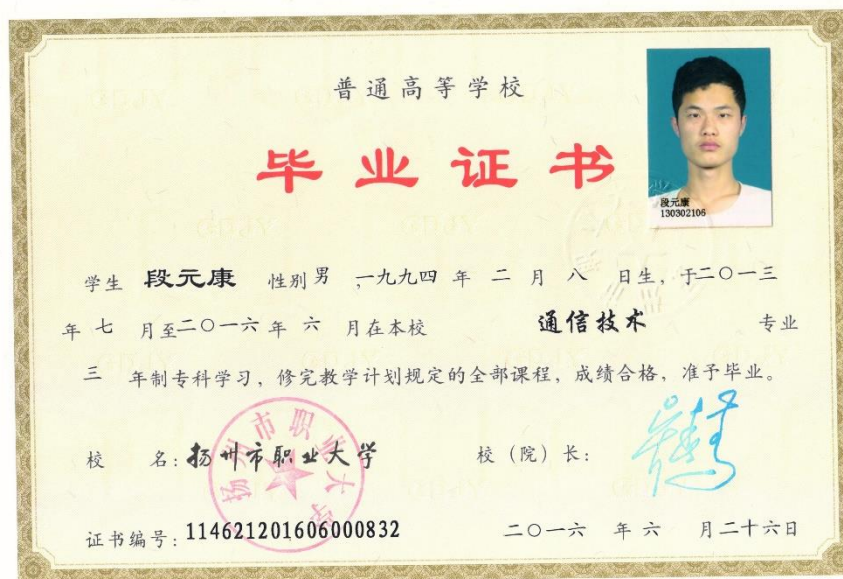 普通高等学校
毕业证书
段元康
130302106
学生 段元康 性别 男 ,一九九四 年 二 月 八 日生, 于二〇一三
年 七 月至二〇一六 年 六 月在本校 通信技术 专业
三 年制专科学习, 修完教学计划规定的全部课程, 成绩合格, 准予毕业。
校 名: 扬州市职业大学 校(院)长:
扬州市职业大学
证书编号: 114621201606000832 二〇一六 年 六 月二十六日